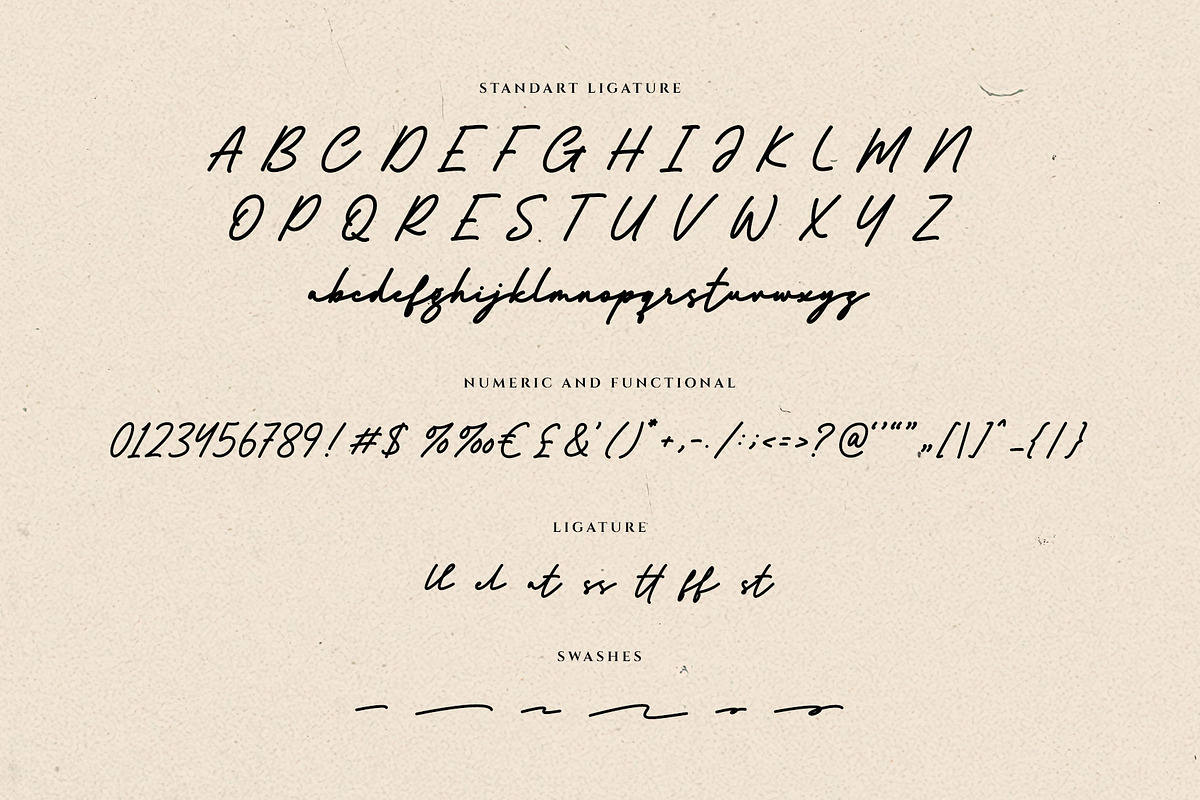 STANDART LIGATURE
A B C D E F G H I J K L M N
O P Q R E S T U V W X Y Z
abcdefghijklmnopqrstuvwxyz
NUMERIC AND FUNCTIONAL
0123456789!#$ %‰€ £&'()*+,-./:;<=>?@‘’“”„[\]^_{|}
LIGATURE
ll el at ss tt ff st
SWASHES